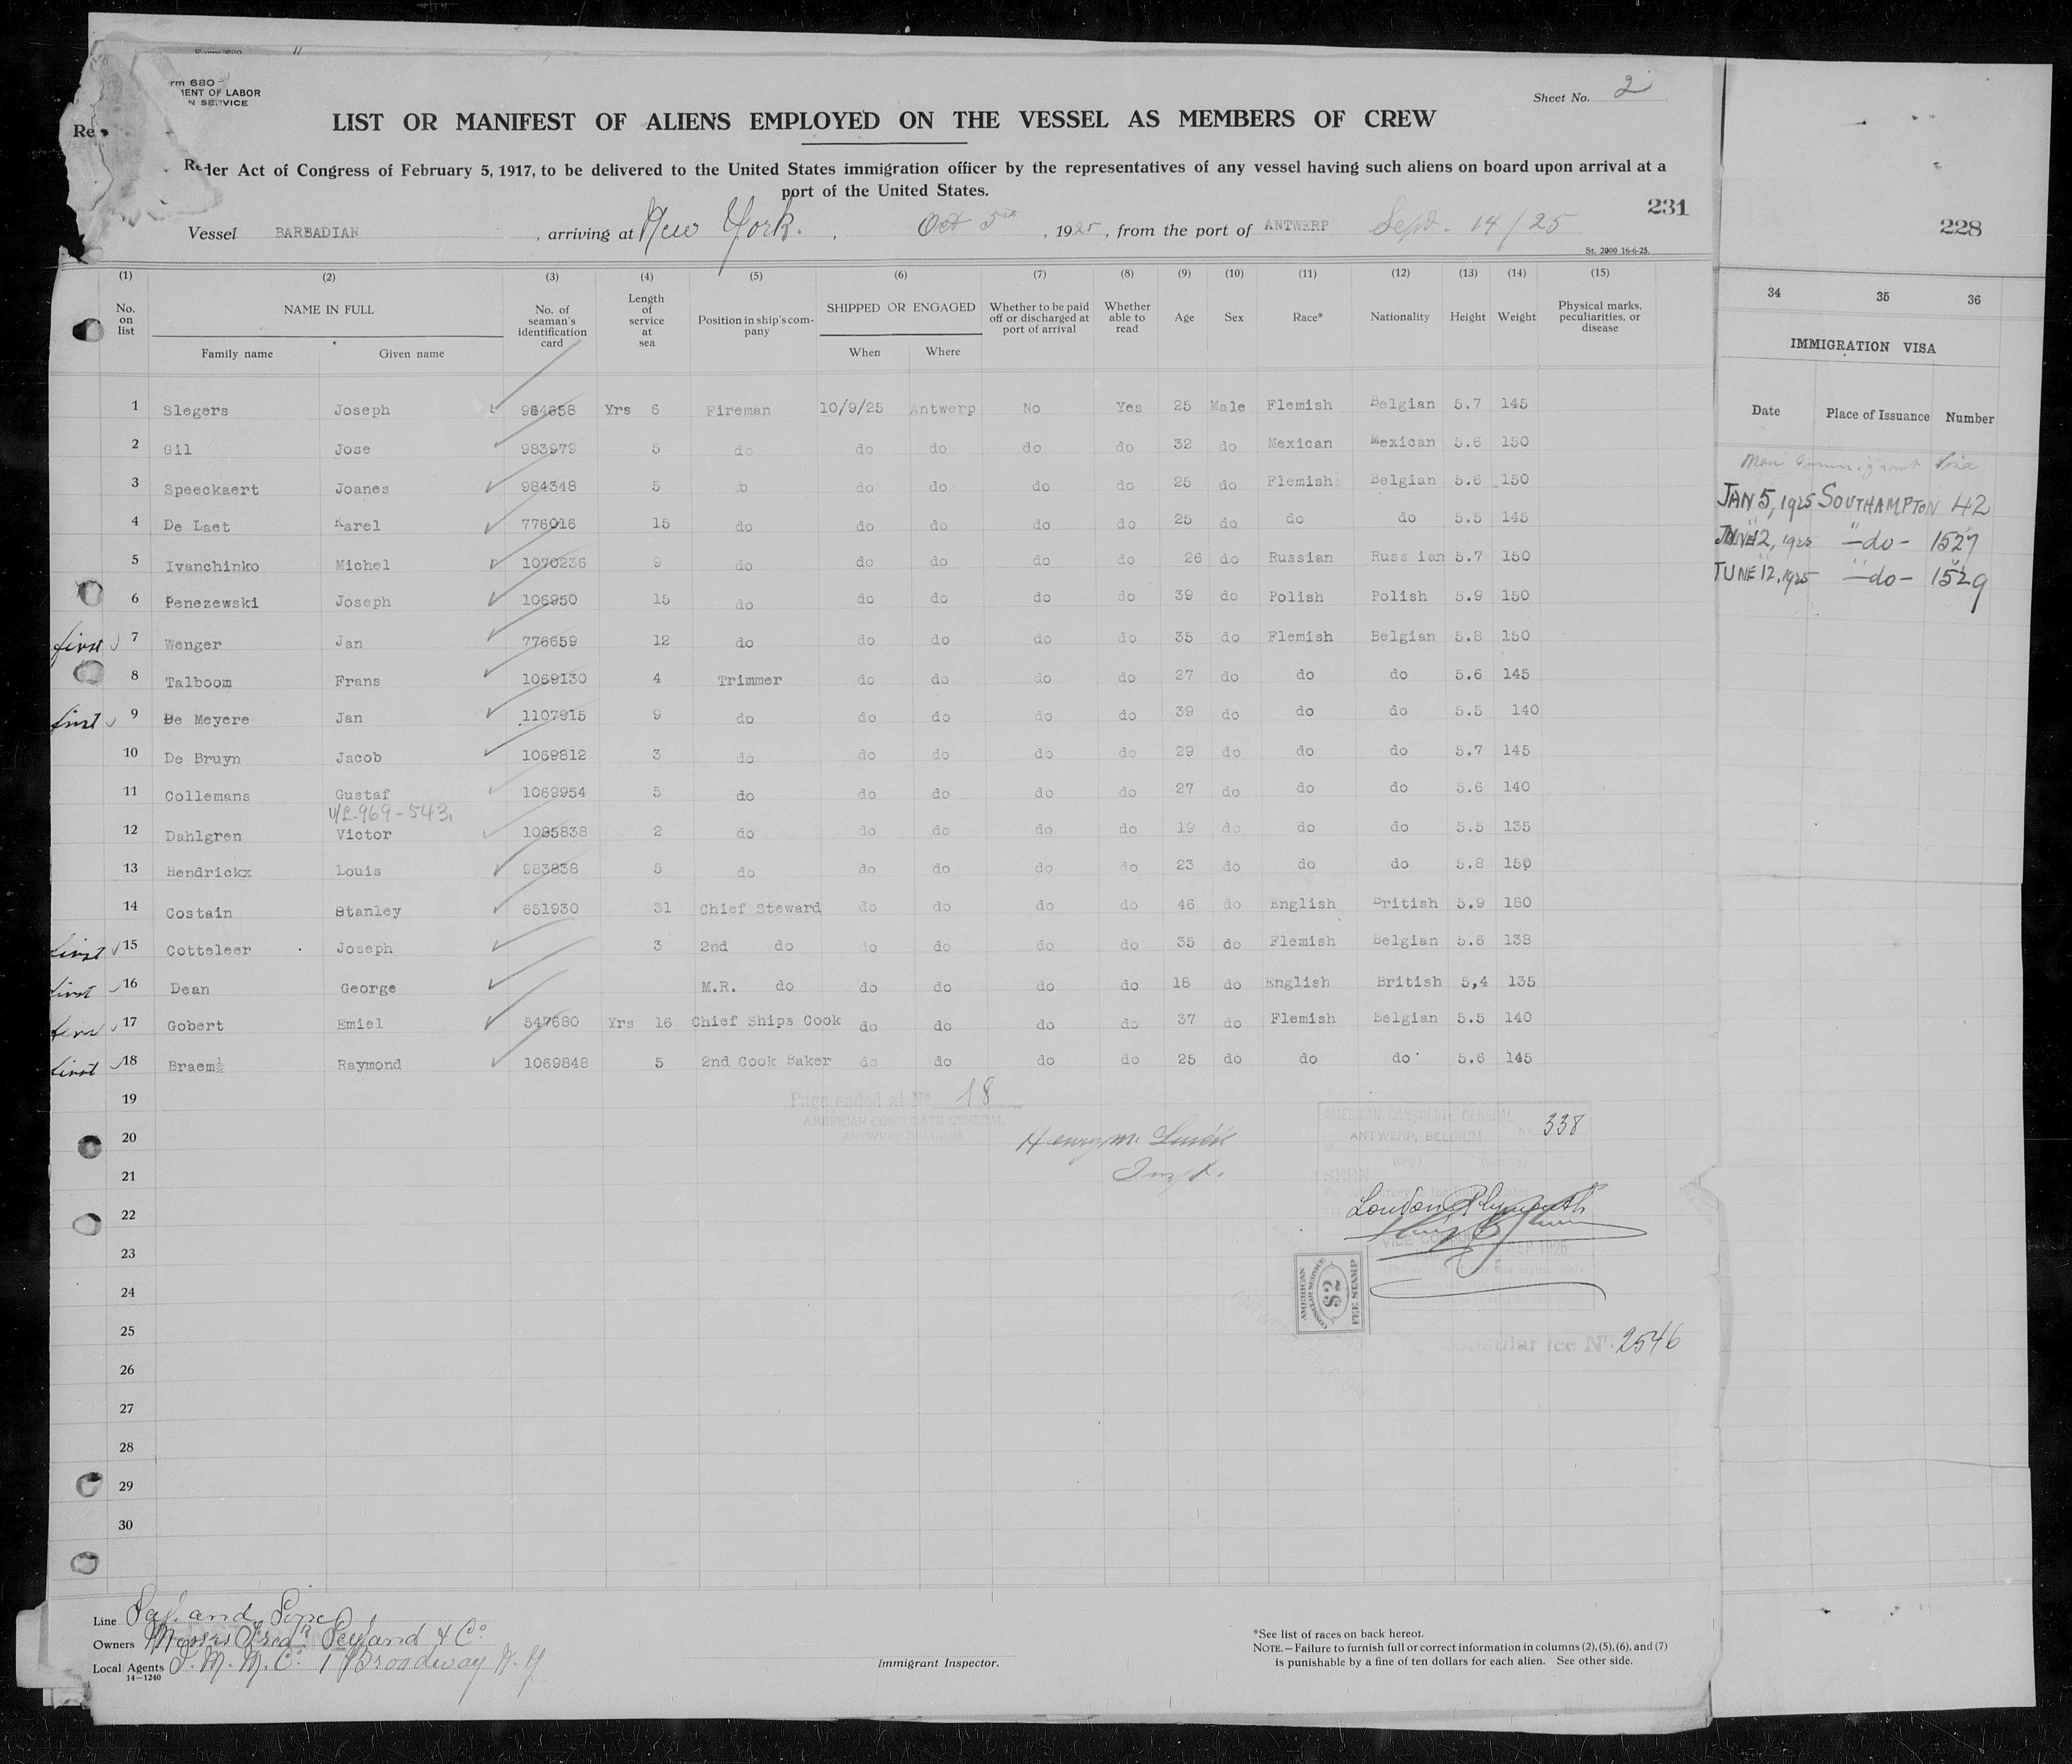 Form 680
rm 680
MENT OF LABOR
N SERVICE
Sheet No. 2
LIST OR MANIFEST OF ALIENS EMPLOYED ON THE VESSEL AS MEMBERS OF CREW
Re
der Act of Congress of February 5, 1917, to be delivered to the United States immigration officer by the representatives of any vessel having such aliens on board upon arrival at a
port of the United States.
231
228
Vessel BARBADIAN, arriving at New York. Oct 5th, 1925, from the port of ANTWERP Sept. 14/25
St. 2000 16-6-25.
(1) (2) (3) (4) (5) (6) (7) (8) (9) (10) (11) (12) (13) (14) (15)
34 35 36
No. on list NAME IN FULL Family name Given name No. of seaman's identification card Length of service at sea Position in ship's company SHIPPED OR ENGAGED When Where Whether to be paid off or discharged at port of arrival Whether able to read Age Sex Race* Nationality Height Weight Physical marks, peculiarities, or disease
IMMIGRATION VISA
Date Place of Issuance Number
1 Slegers Joseph 984658 Yrs 6 Fireman 10/9/25 Antwerp No Yes 25 Male Flemish Belgian 5.7 145
2 Gil Jose 983979 5 do do do do do 32 do Mexican Mexican 5.6 150
3 Speeckaert Joanes 984348 5 do do do do do 25 do Flemish Belgian 5.6 150
4 De Laet Karel 776016 15 do do do do do 25 do do do 5.5 145
5 Ivanchinko Michel 1070236 9 do do do do do 26 do Russian Russian 5.7 150
6 Penezewski Joseph 106950 15 do do do do do 39 do Polish Polish 5.9 150
first 7 Wenger Jan 776659 12 do do do do do 35 do Flemish Belgian 5.8 150
8 Talboom Frans 1069130 4 Trimmer do do do do 27 do do do 5.6 145
first 9 De Meyere Jan 1107915 9 do do do do do 39 do do do 5.5 140
10 De Bruyn Jacob 1069812 3 do do do do do 29 do do do 5.7 145
11 Collemans Gustaf 1069954 5 do do do do do 27 do do do 5.6 140
969-543
12 Dahlgren Victor 1085838 2 do do do do do 19 do do do 5.5 135
13 Hendrickx Louis 983838 5 do do do do do 23 do do do 5.8 150
14 Costain Stanley 651930 31 Chief Steward do do do do 46 do English British 5.9 180
first 15 Cotteleer Joseph 3 2nd do do do do do 35 do Flemish Belgian 5.6 138
first 16 Dean George M.R. do do do do do 18 do English British 5,4 135
first 17 Gobert Emiel 547680 Yrs 16 Chief Ships Cook do do do do 37 do Flemish Belgian 5.5 140
first 18 Braem Raymond 1069848 5 2nd Cook Baker do do do do 25 do do do 5.6 145
Non Immigrant Visa
JAN 5, 1925 SOUTHAMPTON 42
JUNE 12, 1925 -do- 1527
JUNE 12, 1925 -do- 1529
19
20
21
22
23
24
25
26
27
28
29
30
Page ended at No 18
AMERICAN CONSULATE GENERAL
ANTWERP BELGIUM
Insp.
AMERICAN CONSULATE GENERAL
ANTWERP, BELGIUM No 338
(City) (Country)
SEEN
London Plymouth
VICE CONSUL
SEP 1925
AMERICAN CONSULAR SERVICE $2 FEE STAMP
Consular fee No. 2546
Line Leyland Line
Owners Messrs Fredk Leyland & Co
Local Agents I. M. M. Co 1 Broadway N. Y
14-1240
Immigrant Inspector.
*See list of races on back hereof.
NOTE.—Failure to furnish full or correct information in columns (2), (5), (6), and (7)
is punishable by a fine of ten dollars for each alien. See other side.